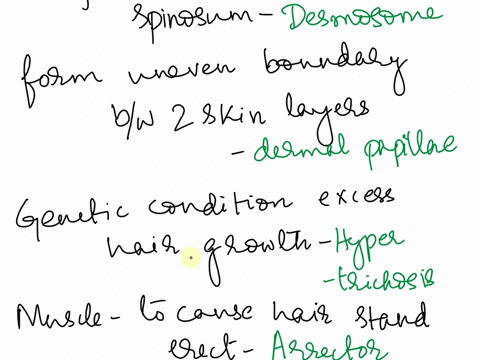 spinosum - Desmosome
form uneven boundary
b/w 2 skin layers
- dermal papillae
Genetic condition excess
hair growth - Hyper
- trichosis
Muscle - to cause hair stand
erect - Arrector